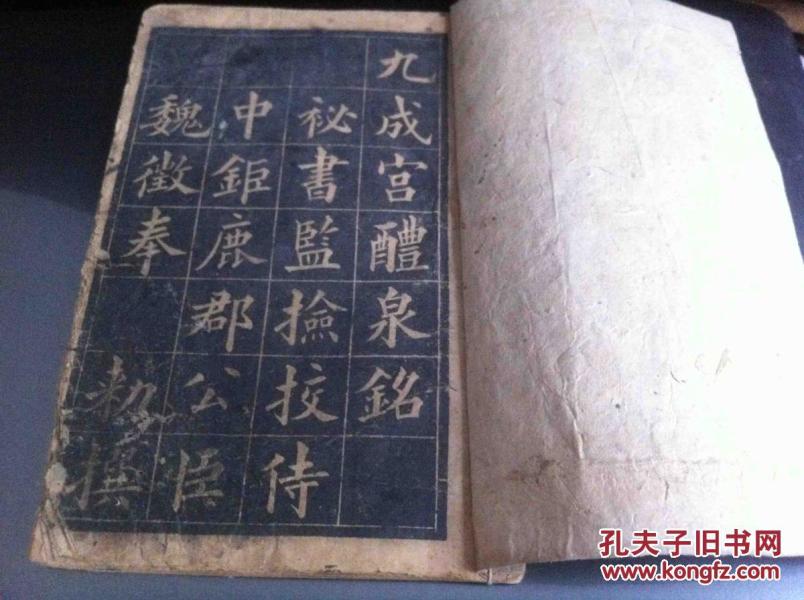 九成宫醴泉銘
祕書監撿挍侍
中鉅鹿郡公臣
魏徵奉
勅撰
孔夫子旧书网
www.kongfz.com